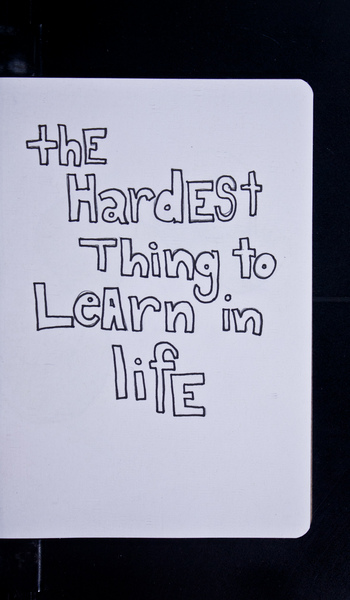 thE
HardESt
Thing to
LeArn in
lifE